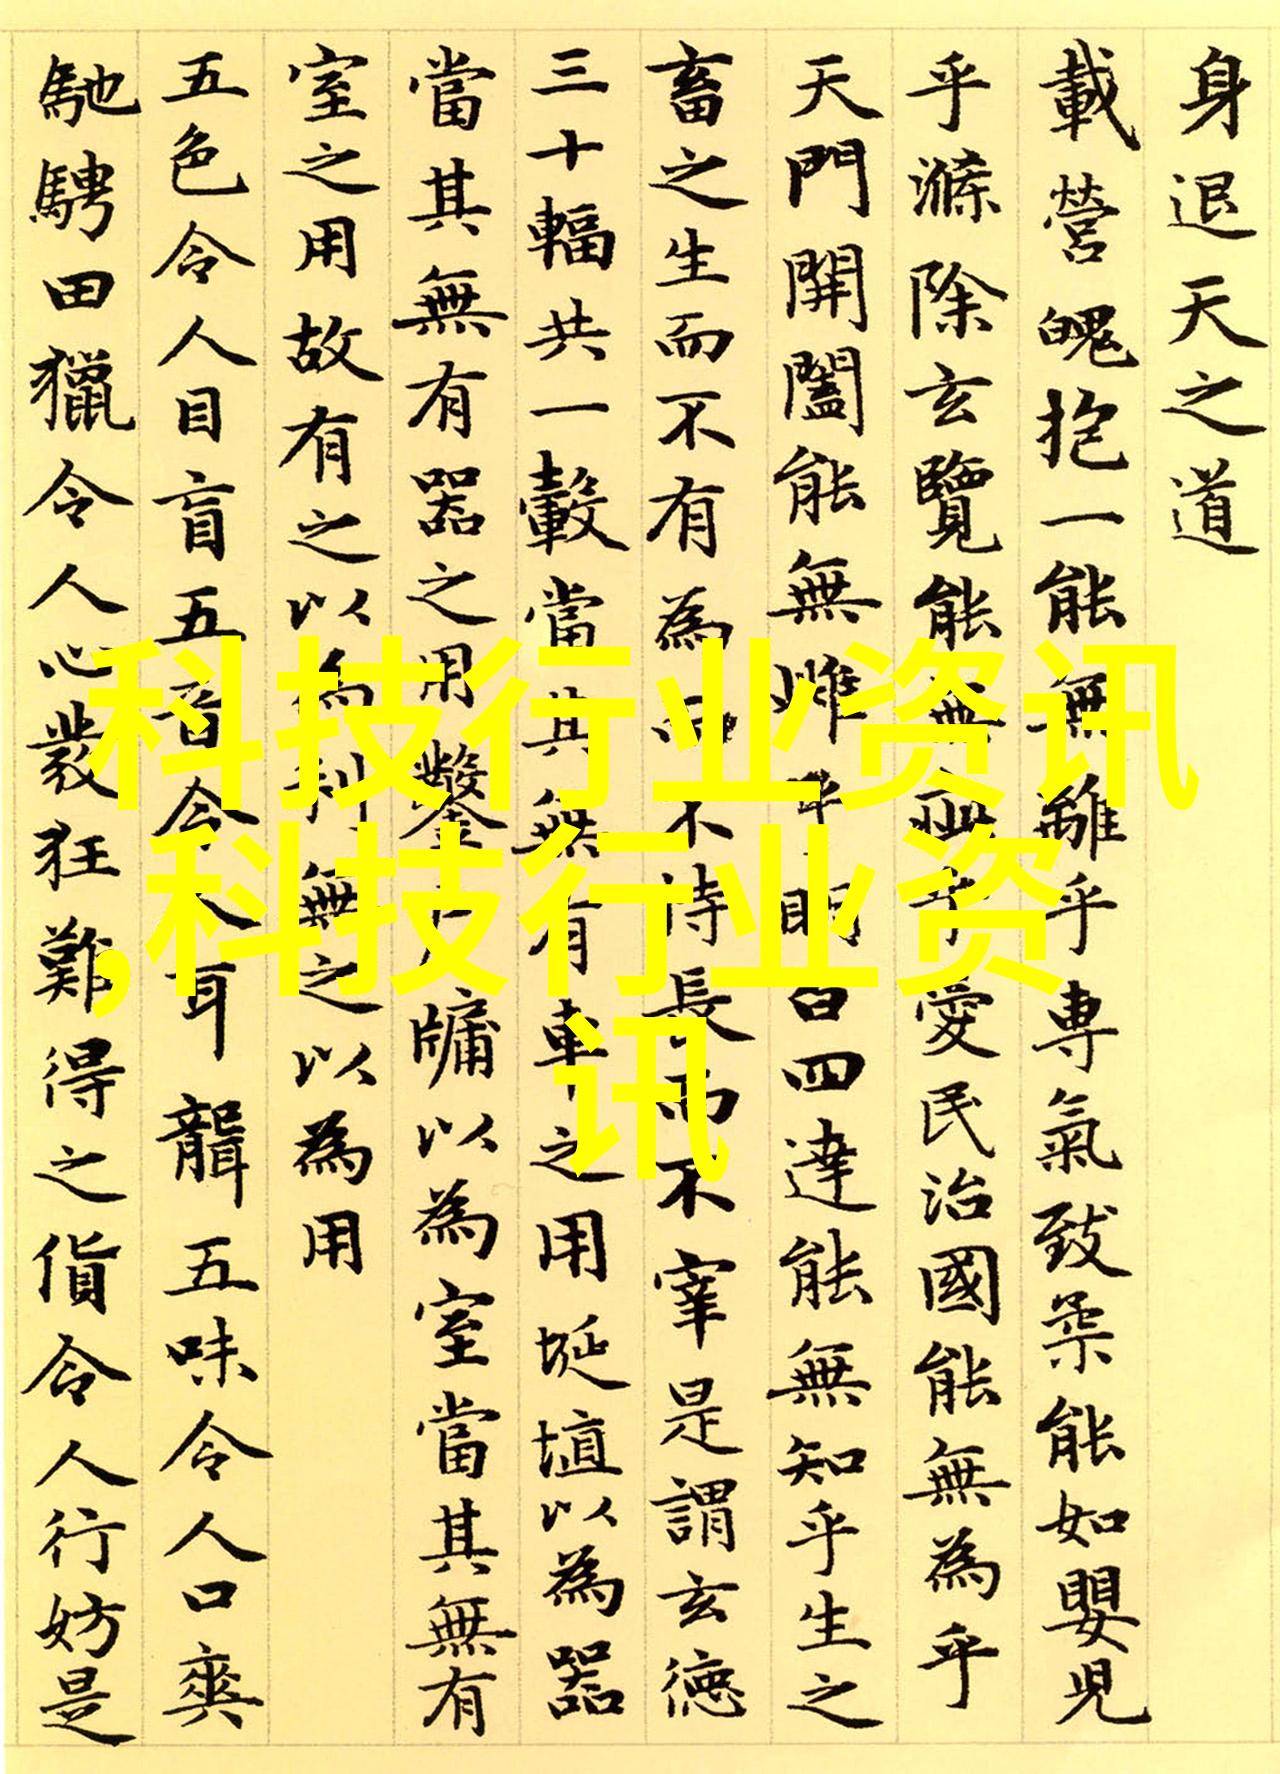 身退天之道
載營魄抱一能無離乎專氣致柔能如嬰児
乎滌除玄覽能無疵乎愛民治國能無為乎
天門開闔能無雌乎明白四達能無知乎生之
畜之生而不有為而不恃長而不宰是謂玄德
三十輻共一轂當其無有車之用埏埴以為器
當其無有器之用鑿戶牖以為室當其無有
室之用故有之以為利無之以為用
五色令人目盲五音令人耳聾五味令人口爽
馳騁田獵令人心發狂難得之貨令人行妨是
科技行业资讯
,科技行业资
讯